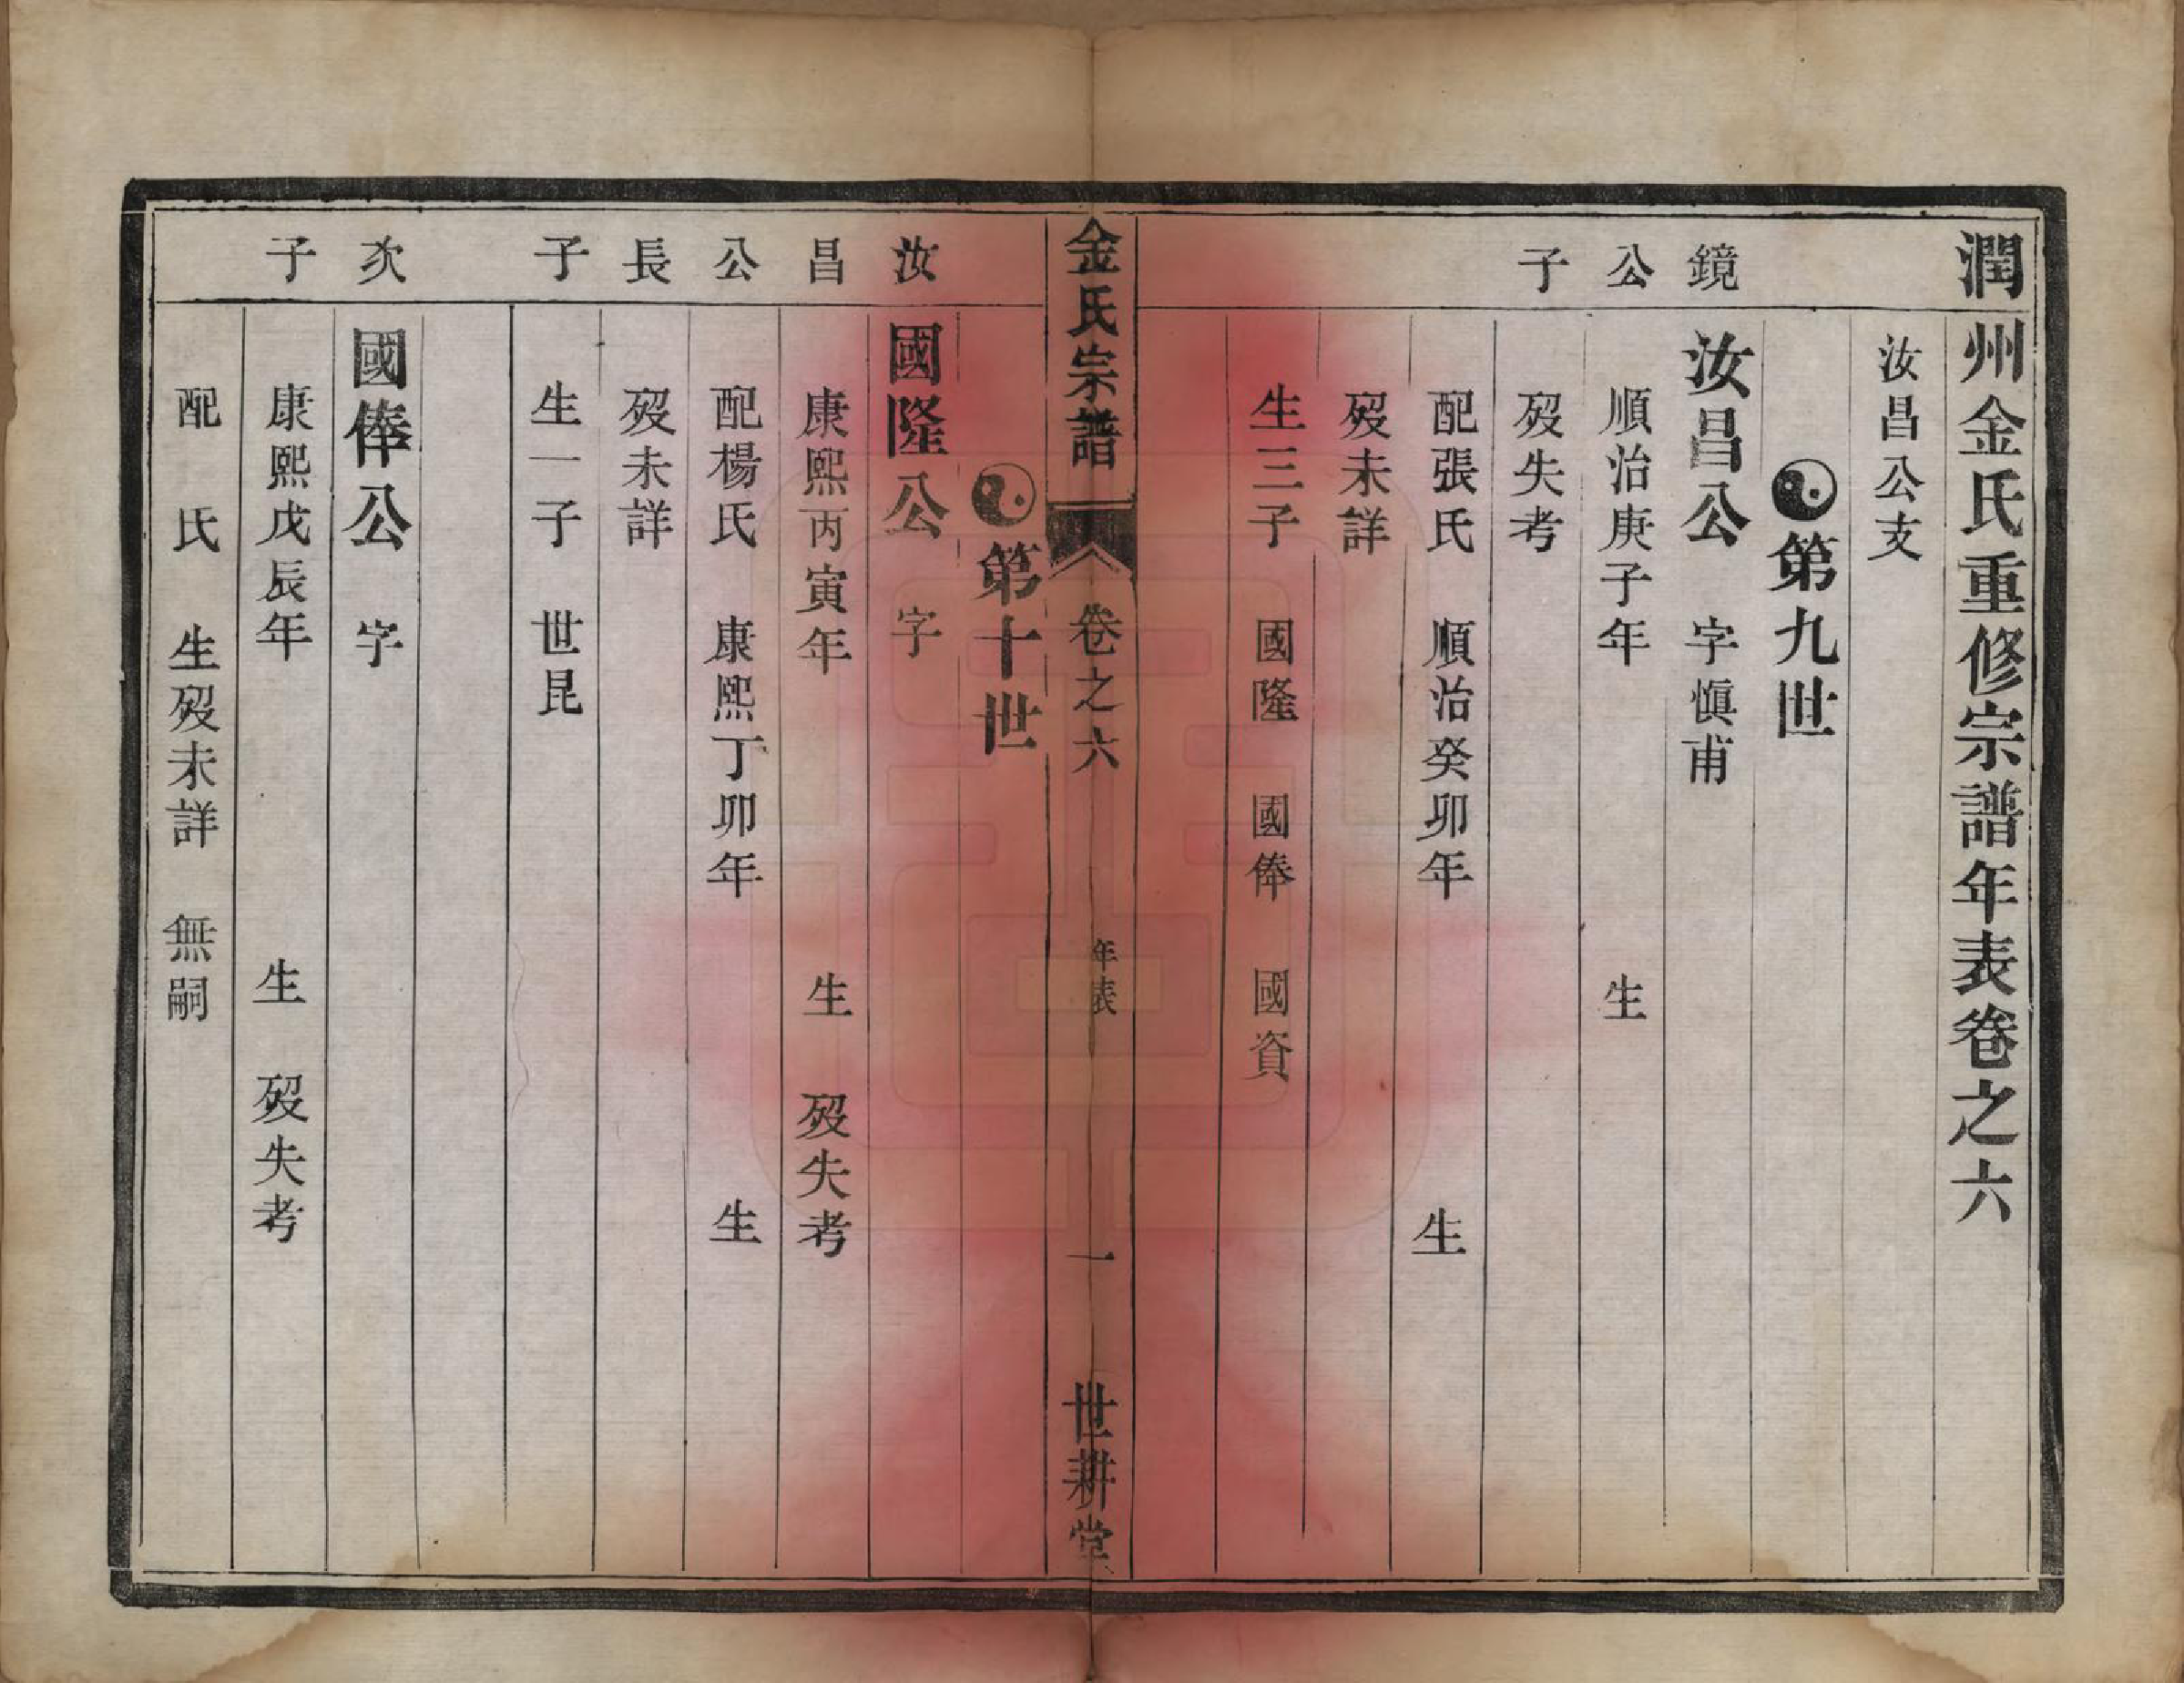 潤州金氏重修宗譜年表卷之六
汝昌公支
第九世
鏡 汝昌公 字慎甫
公 順治庚子年 生
子 歿失考
配張氏 順治癸卯年 生
歿未詳
生三子 國隆 國俸 國資
金氏宗譜 卷之六 年表 一 世耕堂
第十世
汝 國隆公 字
昌 康熙丙寅年 生 歿失考
公 配楊氏 康熙丁卯年 生
長 歿未詳
子 生一子 世昆
次 國俸公 字
子 康熙戊辰年 生 歿失考
配 氏 生歿未詳 無嗣